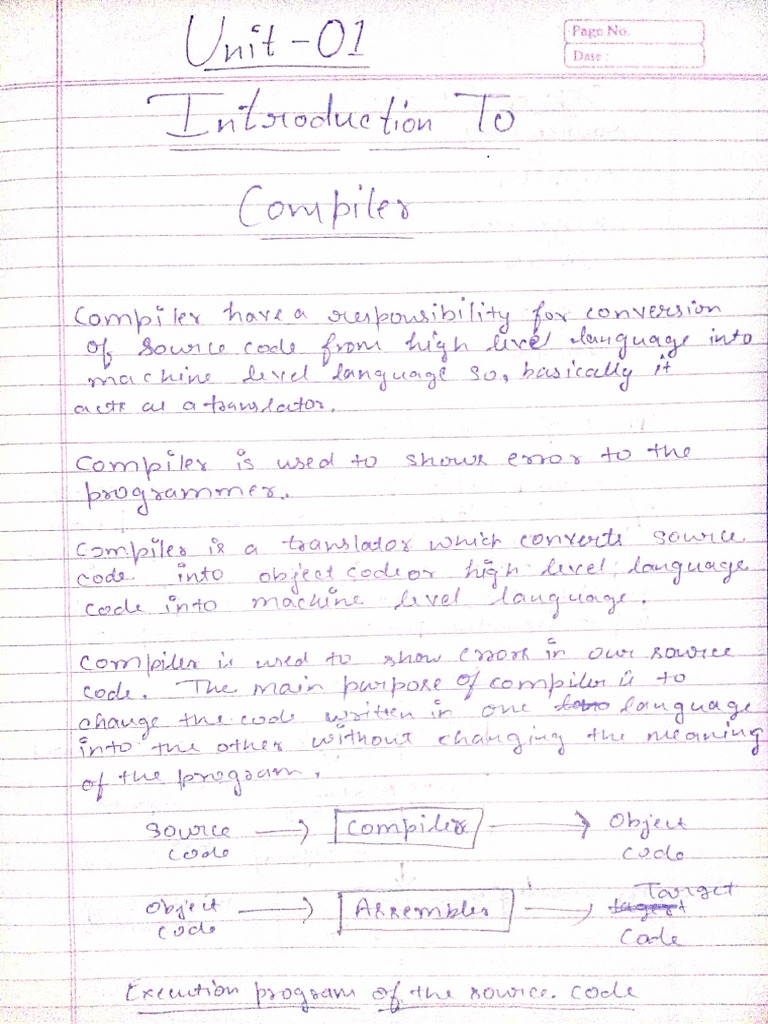 Unit-01
Page No.
Date:
Introduction To
Compiler
Compiler have a responsibility for conversion
of source code from high level language into
machine level language so, basically it
acts as a translator.
Compiler is used to shows error to the
programmer.
Compiler is a translator which converts source
code into object code or high level language
code into machine level language.
Compiler is used to show errors in our source
code. The main purpose of compiler is to
change the code written in one language
into the other without changing the meaning
of the program.
Source code → Compiler → Object code
Object code → Assembler → Target code
Execution program of the source code